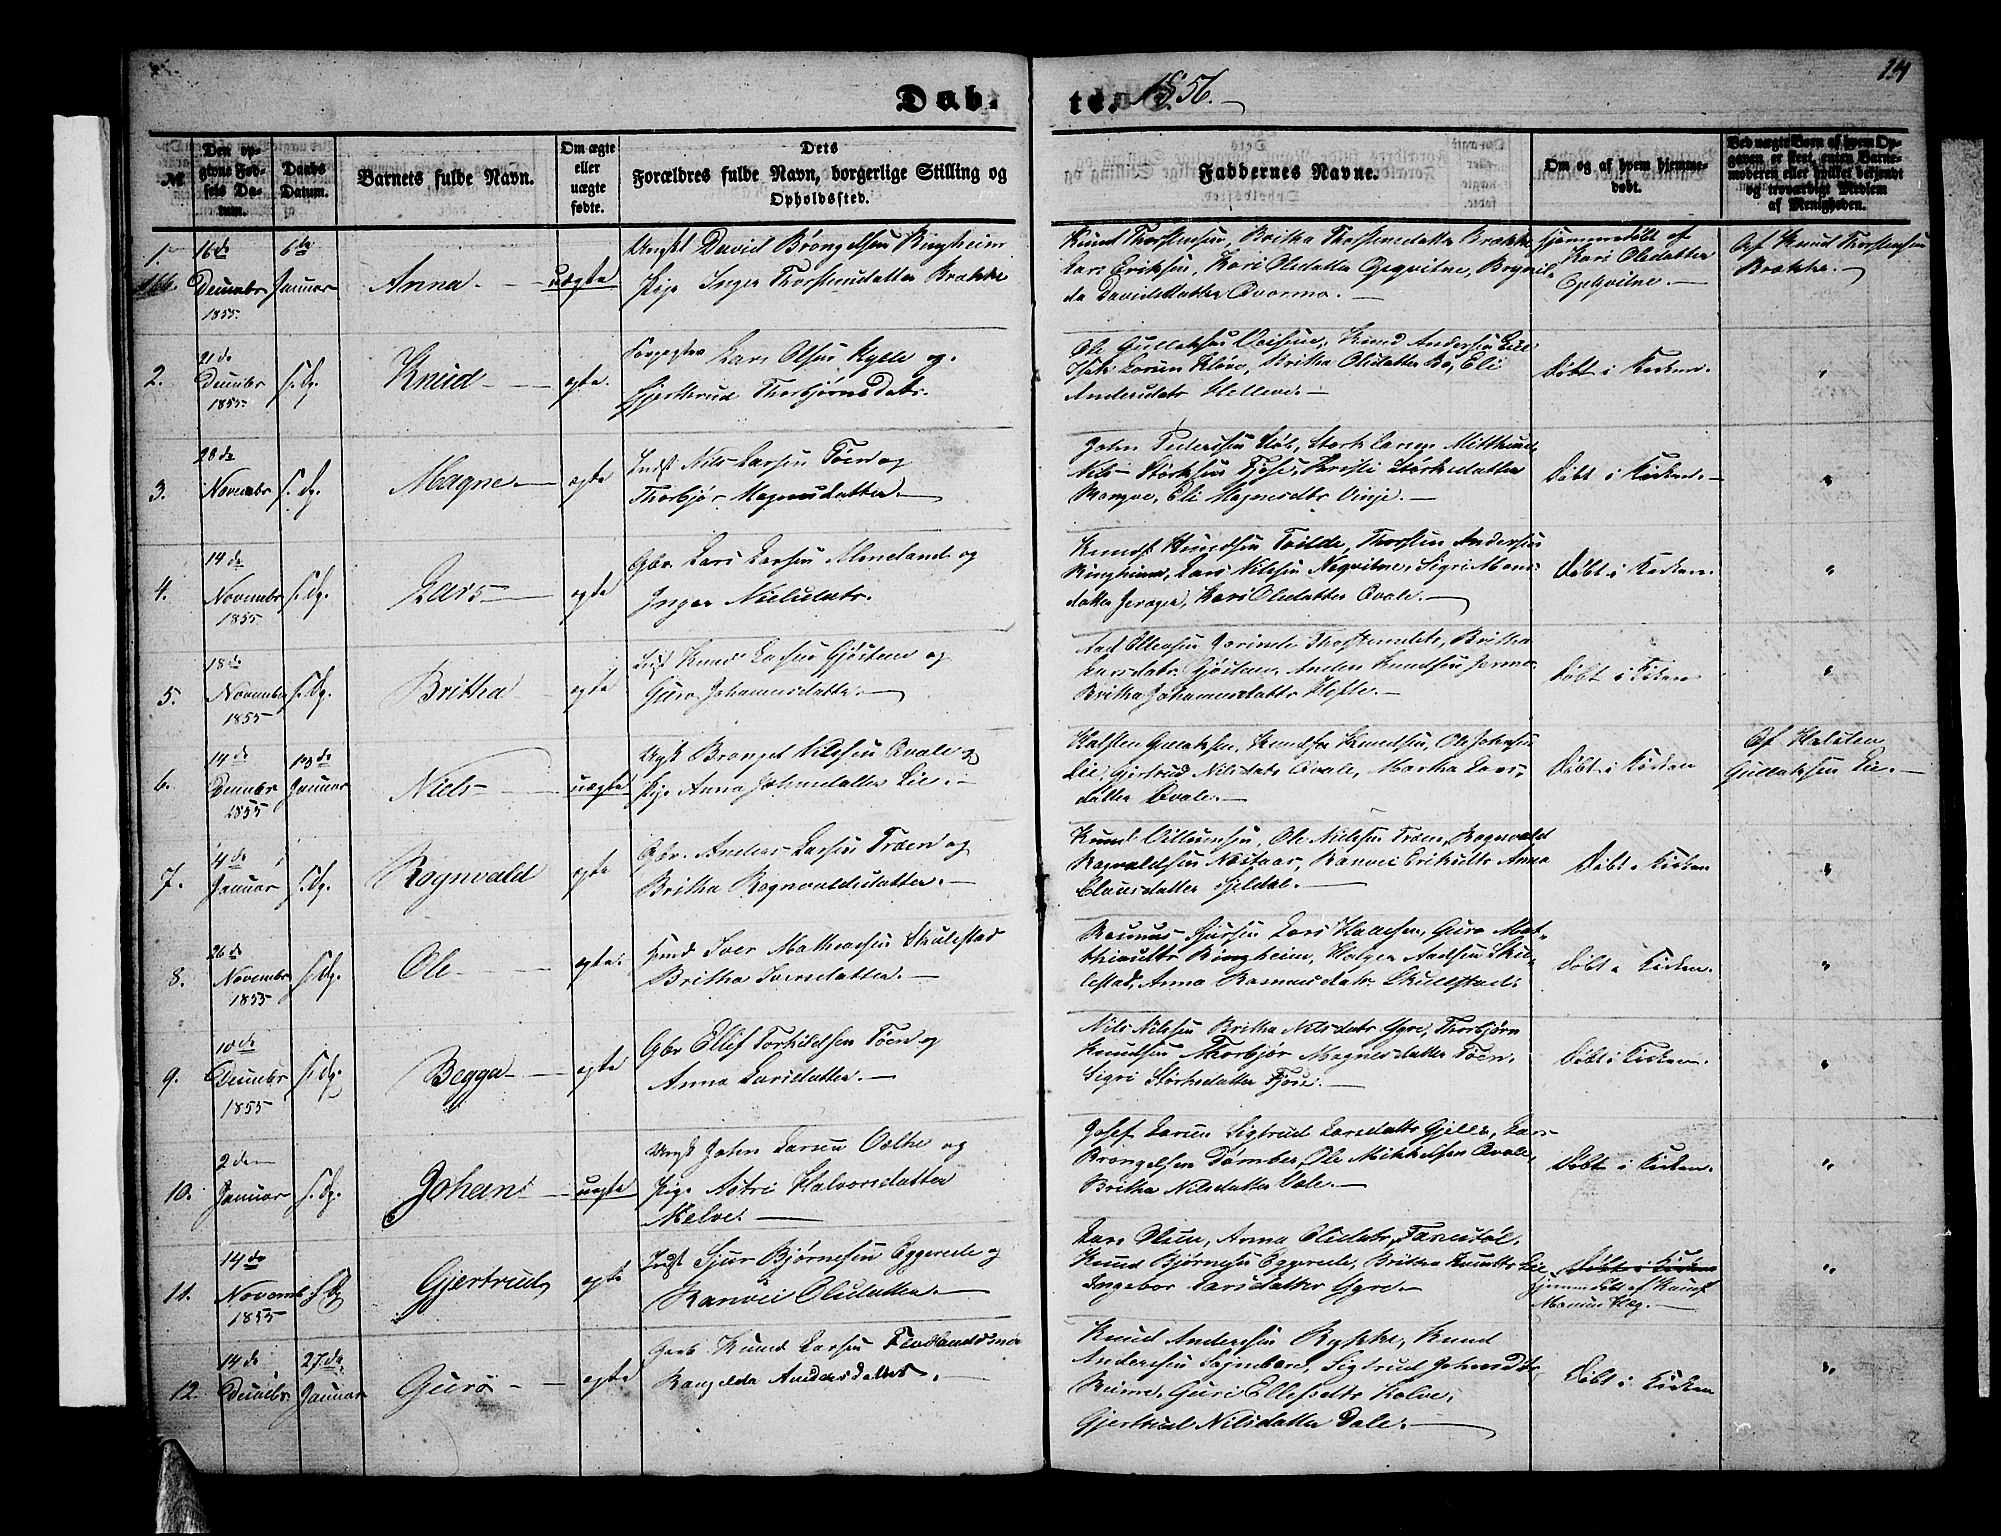 Døb- te. 1856. 14
№
Den opgivne Fødsels Datum.
Daabs Datum.
Barnets fulde Navn.
Om ægte eller uægte fødte.
Dets Forældres fulde Navn, borgerlige Stilling og Opholdssted.
Faddernes Navne.
Om og af hvem hjemmedøbt.
Ved uægte Børn af hvem Opgaven er skeet, enten Barnemoderen eller hvilket bekjendt og troværdigt Medlem af Menigheden.
1.
16de Decembr 1855.
6te Januar
Anna
uægte
Ungkl David Brøngelsen Ringheim
Pige Inger Thorstensdatter Brække
Knud Thorstensen, Britha Thorstensdatter Brække
Lars Eriksen, Kari Olsdatter Opqvitne, Brynil-
da Davidsdatter
hjemmedøbt af
Kari Olsdatter
Opqvitne.
Af Knud Thorstensen
Brække.
2.
21de
Decembr
1855.
s. Dg.
Knud
ægte.
Lars Olsen Kyte og
Gjertrud Thorbjørnsdatr.
Ole Gullaksen, Knud Andersen Lie
Britha Olsdatter Bø, Eli
Andersdatr Helleve.
Døbt i Kirken.
"
3.
28de
Novembr
s. Dg.
Magne
ægte
Indst Nils Larsen Töen og
Thorbjør Magnusdatter.
John Pedersen
Nils Störksen Tjose, Kristi Störksdatter
Rongve, Eli Magnesdtr Vinje.
Døbt i Kirken.
"
4.
14de
Novembr
1855.
s. Dg.
Lars
ægte
Gbr. Lars Larsen Almeland og
Inger Nielsdatr.
Thorsten Andersen
Ringheim, Lars Nilsen Neqvitne, Sigri Mons-
datter, Kari Olsdatter Qvale.
Døbt i Kirken.
"
5.
18de
Novembr
1855
s. Dg.
Britha
ægte
Indst Knud Larsen Gjøstein og
Guro Johannesdatter.
Aad Ellensen, Britha
Larsdatr Gjøstein, Anders Knudsen
Britha Johannesdatter Hefte.
Døbt i Kirken
"
6.
14de
Decembr
1855
13de
Januar
Niels
uægte
Ungk Brøngel Nilssen Qvale og
Pige Anna Johnsdatter Lie.
Halsten Gullaksen, Knud Knudsen, Ole Johnsen
Lie, Gjertrud Nilsdatr Qvale, Martha Lars-
datter Qvale.
Døbt i Kirken
Af Halsten
Gullaksen Lie.
7.
4de
Januar
s. Dg.
Rognvald
ægte
Gbr. Anders Larsen Træen og
Britha Rognvaldsdatter.
Knud Villumsen, Ole Nilssen Træen, Rognvald
Rognvaldsen Nestaas, Ranvei Eriksdtr, Anna
Clausdatter Sjeldal.
Døbt i Kirken
"
8.
26de
Novembr
1855
s. Dg.
Ole
ægte.
Hmd Iver Mathiassen Skulestad
Britha Iversdatter.
Rasmus Sjursen, Lars Haaesen, Guro Mat-
thiasdtr Ringheim, Holger Aadsen Sku-
lestad, Anna Rasmusdatr Skulestad.
Døbt i Kirken.
"
9.
10de
Decembr
1855
s. Dg.
Begga
ægte
Gbr Ellif Torkildsen Töen og
Anna Larsdatter.
Nils Nilssen, Britha Nilsdatr Gjre, Thorbjörn
Knudsen, Thorbjør Magnesdatter Töen,
Sigri Störksdatter Tjose.
Døbt i Kirken.
"
10.
2den
Januar
s. Dg.
Johan
uægte
Ungk John Larsen Vethe og
Pige Astri Halvorsdatter
Mølve.
Josef Larsen, Sigtrud Larsdatr Gjelle, Lars
Brøngelsen Dømbe, Ole Mikkelsen Qvale,
Britha Nilsdatter Vale.
Døbt i Kirken.
"
11.
14de
Novemb
1855
s. Dg
Gjertrud
ægte
Indst Sjur Bjørnesen Eggereide og
Ranvei Olsdatter.
Lars Olsen, Anna Olsdatr
Knud Bjørnesen Eggereide, Britha Knutsdtr Lie
Ingebor Larsdatter Gjre.
Døbt i Kirken
hjemmedøbt af Knud
"
12.
14de
Decembr
27de
Januar
Guro
ægte
Gaarb Knud Larsen Flatlandsmo
Rangelda Andersdatter.
Knud Anderssen Rykke, Knud
Andersen, Sigtrud Johnsdtr
Reime, Guri Ellefsdtr Holve,
Gjertrud Nilsdatter Dale.
Døbt i Kirken
"